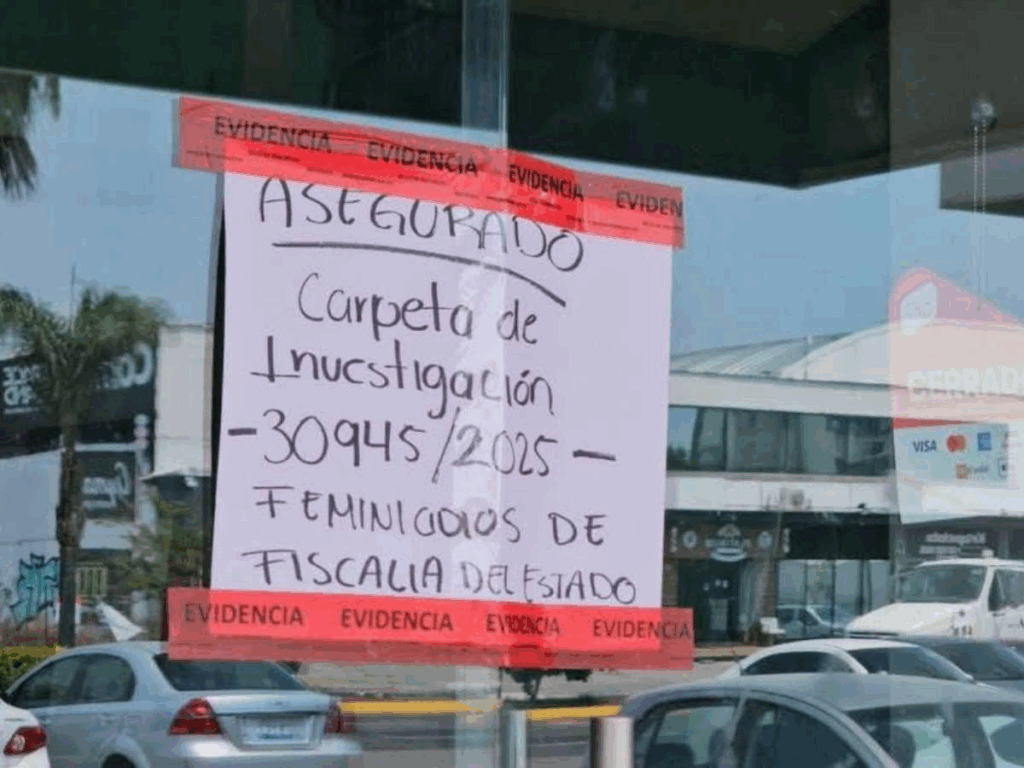 EVIDENCIA EVIDENCIA EVIDENCIA EVIDEN
ASEGURADO
Carpeta de
Investigación
-30945/2025-
FEMINICIDIOS DE
FISCALIA DEL ESTADO
EVIDENCIA EVIDENCIA EVIDENCIA EVIDENCIA
CERRAD
VISA